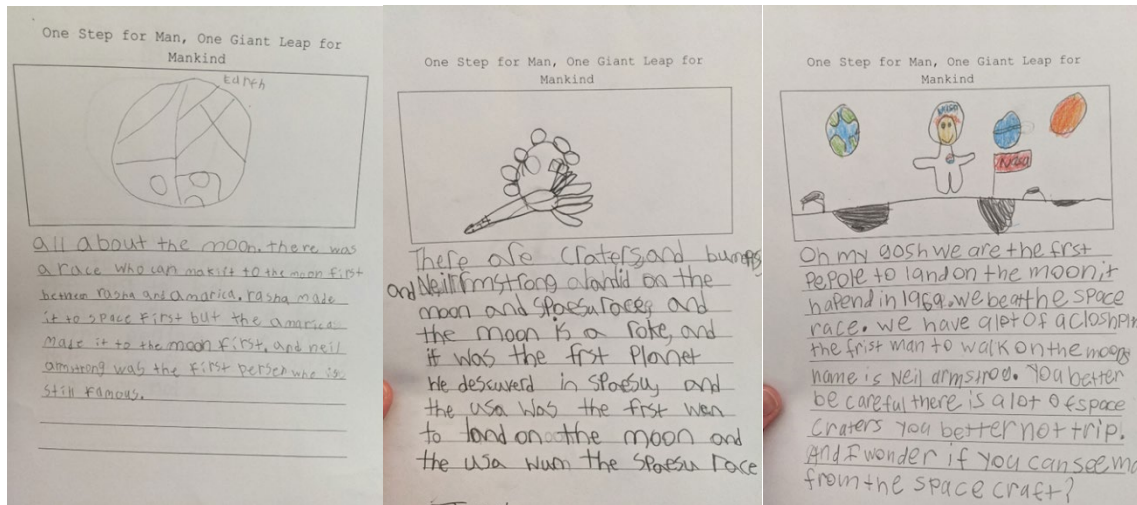 One Step for Man, One Giant Leap for
Mankind
Earth
all about the moon. there was
a race who can makist to the moon first
between rasha and amarica. rasha made
it to space first but the amarica
made it to the moon first. and neil
armstrong was the first persen who is
still famous.
One Step for Man, One Giant Leap for
Mankind
There are craters, and bumps
and Neil Armstrong landid on the
moon and spaesu race, and
the moon is a roke, and
it was the frst planet
we descuverd in spaesu, and
the usa was the first wen
to land on the moon and
the usa wum the spaesu race
One Step for Man, One Giant Leap for
Mankind
Oh my gosh we are the frst
pepole to land on the moon it
hapend in 1969. we beat the space
race. we have a lot of
the frist man to walk on the moons
name is Neil armstrog. You better
be careful there is a lot of space
craters you better not trip.
And I wonder if you can see me
from the space craft?